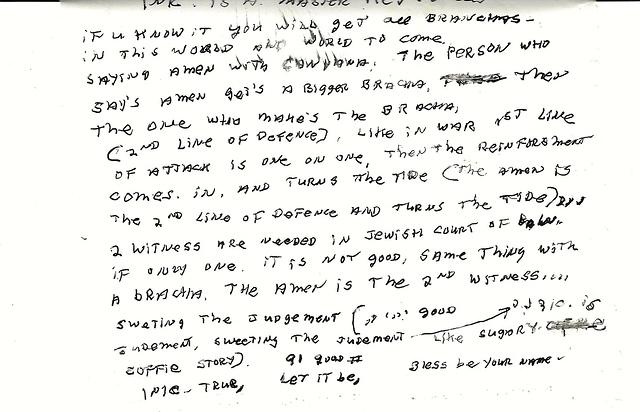 INK. IS A MASTER KEY
if u know it you will get all BRANCHAS -
in THIS WORLD AND WORLD TO COME.
SAYING AMEN WITH The PERSON WHO
SAY'S AMEN GET'S A BIGGER BRACHA, THEN
THE ONE WHO MAKE'S THE BRACHA,
(2ND LINE OF DEFENCE), LIKE IN WAR 1ST LINE
OF ATTACK IS ONE ON ONE, THEN THE REINFORSMENT
COMES. IN, AND TURNS THE TIDE (THE AMEN IS
THE 2ND LINE OF DEFENCE AND TURNS THE TIDE)
2 WITNESS ARE NEEDED IN JEWISH COURT OF
IF ONLY ONE. IT IS NOT GOOD, SAME THING WITH
A BRACHA. THE AMEN IS THE 2ND WITNESS....
SWETING THE JUDGEMENT ( GOOD is
JUDGMENT, SWEETING THE JUDEMENT LIKE SUGARY
COFFIE STORY). 91 GOOD # BLESS be YOUR NAME -
TRUE, LET IT be,